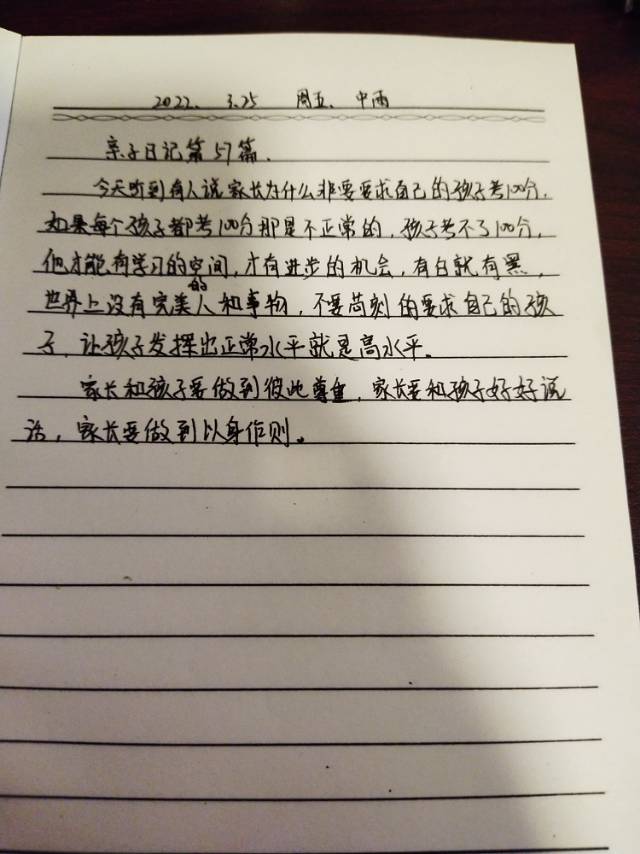 2022. 3.25 周五. 中雨
亲子日记第57篇.
今天听到有人说家长为什么非要要求自己的孩子考100分,
如果每个孩子都考100分那是不正常的,孩子考不了100分,
他才能有学习的空间,才有进步的机会,有白就有黑,
世界上没有完美的人和事物,不要苛刻的要求自己的孩
子,让孩子发挥出正常水平就是高水平。
家长和孩子要做到彼此尊重,家长要和孩子好好说
话,家长要做到以身作则。